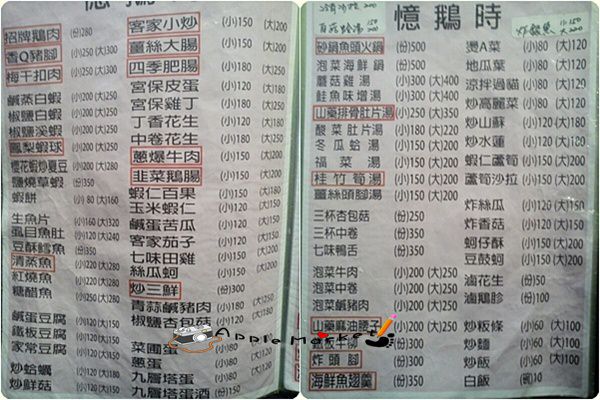 招牌鵝肉 (份)280
香Q豬腳 (小)200 (大)250
梅干扣肉 (小)200 (大)250
鹹蒸白蝦 (小)220 (大)250
椒鹽白蝦 (小)220 (大)250
椒鹽溪蝦 (小)200 (大)280
鳳梨蝦球 (小)200 (大)280
櫻花蝦炒夏豆 (小)180 (大)200
鹽燒草蝦 (份)350
蝦餅 (小)80 (大)160
生魚片 (小)160 (大)320
虱目魚肚 (小)120 (大)240
豆酥鱈魚 (份)350
清蒸魚 (小)220 (大)280
紅燒魚 (小)220 (大)280
糖醋魚 (小)250 (大)280
鹹蛋豆腐 (小)120 (大)180
鐵板豆腐 (小)120 (大)180
家常豆腐 (小)120 (大)180
炒蛤蠣 (小)120 (大)150
炒鮮菇 (小)120 (大)150
客家小炒 (小)150 (大)200
薑絲大腸 (小)150 (大)200
四季肥腸 (小)180 (大)200
宮保皮蛋 (小)120 (大)180
宮保雞丁 (小)180 (大)200
丁香花生 (小)120 (大)180
中卷花生 (小)180 (大)200
蔥爆牛肉 (小)150 (大)200
韭菜鵝腸 (小)150 (大)200
蝦仁百果 (小)180 (大)200
玉米蝦仁 (小)180 (大)200
鹹蛋苦瓜 (小)150 (大)180
客家茄子 (小)120 (大)150
七味田雞 (小)200 (大)250
絲瓜蚵 (小)150 (大)200
炒三鮮 (份)300
青蒜鹹豬肉 (小)180
椒鹽杏包菇
菜圃蛋
蔥蛋
九層塔蛋
九層塔蛋酒
憶鵝時
炸銀魚
砂鍋魚頭火鍋 (份)500
泡菜海鮮鍋 (份)500
蘑菇雞湯 (小)300 (大)400
鮭魚味增湯 (小)300 (大)400
山藥排骨肚片湯 (小)250 (大)350
酸菜肚片湯 (小)220 (大)280
冬瓜蛤湯 (小)150 (大)200
福菜湯 (小)150 (大)200
桂竹筍湯 (小)150 (大)200
薑絲頭腳湯 (小)120 (大)150
三杯杏包菇 (份)250
三杯中卷 (份)350
七味鴨舌 (份)350
泡菜牛肉 (小)200 (大)250
泡菜中卷 (小)200 (大)250
泡菜鹹豬肉 (小)200 (大)250
山藥麻油腰子 (小)200 (大)250
炸頭腳
海鮮魚翅羹 (份)350
燙A菜 (小)80 (大)120
地瓜葉 (小)80 (大)120
涼拌過貓 (小)80 (大)120
炒高麗菜 (小)80 (大)120
炒山蘇 (小)80 (大)120
炒水蓮 (小)80 (大)120
蝦仁蘆筍 (小)150 (大)200
蘆筍沙拉 (小)150 (大)200
炸絲瓜 (小)120 (大)150
炸香菇 (小)120 (大)150
蚵仔酥 (小)150 (大)200
豆鼓蚵 (小)150 (大)200
滷花生 (份)50
滷鵝胗 (份)100
炒粄條 (小)60 (大)100
炒麵 (小)60 (大)100
炒飯 (小)60 (大)100
白飯 (碗)10
Apple Market